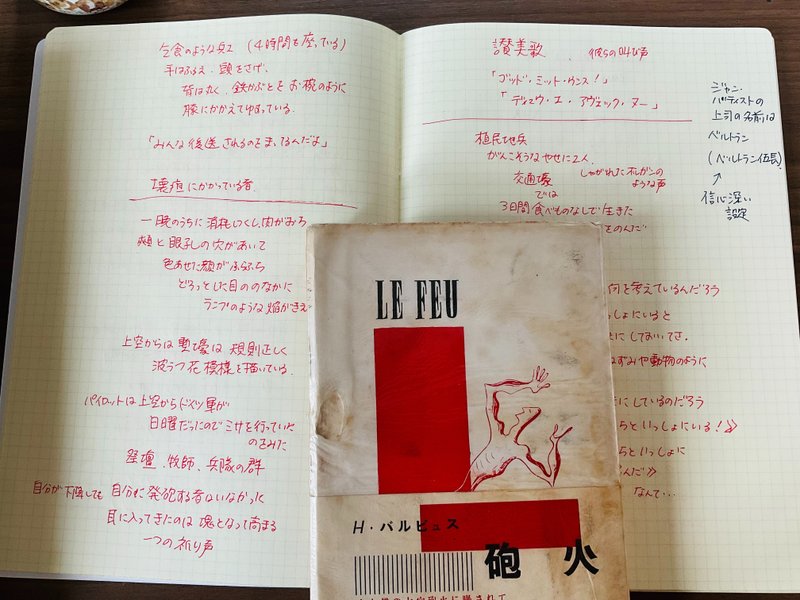 乞食のような兵士 (4時間も座っている)
手はふるえ、頭をさげ、
背は丸く、鉄かぶとをお椀のように
膝にかかえてゆすっている.
「みんな後送されるのをまってるんだよ」
壊疽にかかっている者.
眼のうちに消耗しつくし、肉がおち
頬と眼に穴があいて
色あせた顔が
どろっとした目ののなかに
ランプのような焔がきえ
上空からは塹壕は規則正しく
波うつ花模様を描いている.
パイロットは上空からドイツ軍が
日曜だったのでミサを行っていた
のをみた
祭壇、牧師、兵隊の群
自分が下降しても自分に発砲する者はいなかった
耳に入ってきたのは塊となって高まる
一つの祈り声
讃美歌、彼らの叫び声
「ゴッド・ミット・ウンス!」
「デュウ・エ・アヴェック・ヌー」
植民地兵
がんこそうなやせた2人.
しゃがれたオルガンの
ような声
交通壕
では
3日間食べものなしで生きた
をのんだ
何を考えているんだろう
っしょにいると
にしておいてさ.
ねずみや動物のように
にしているのだろう
らといっしょにいる!》
らといっしょに
るんだ》
なんて…
ジャン・
バティストの
上司の名前は
ベルトラン
(ベルトラン伍長)
↑
信心深い
設定
LE FEU
H・バルビュス
砲火